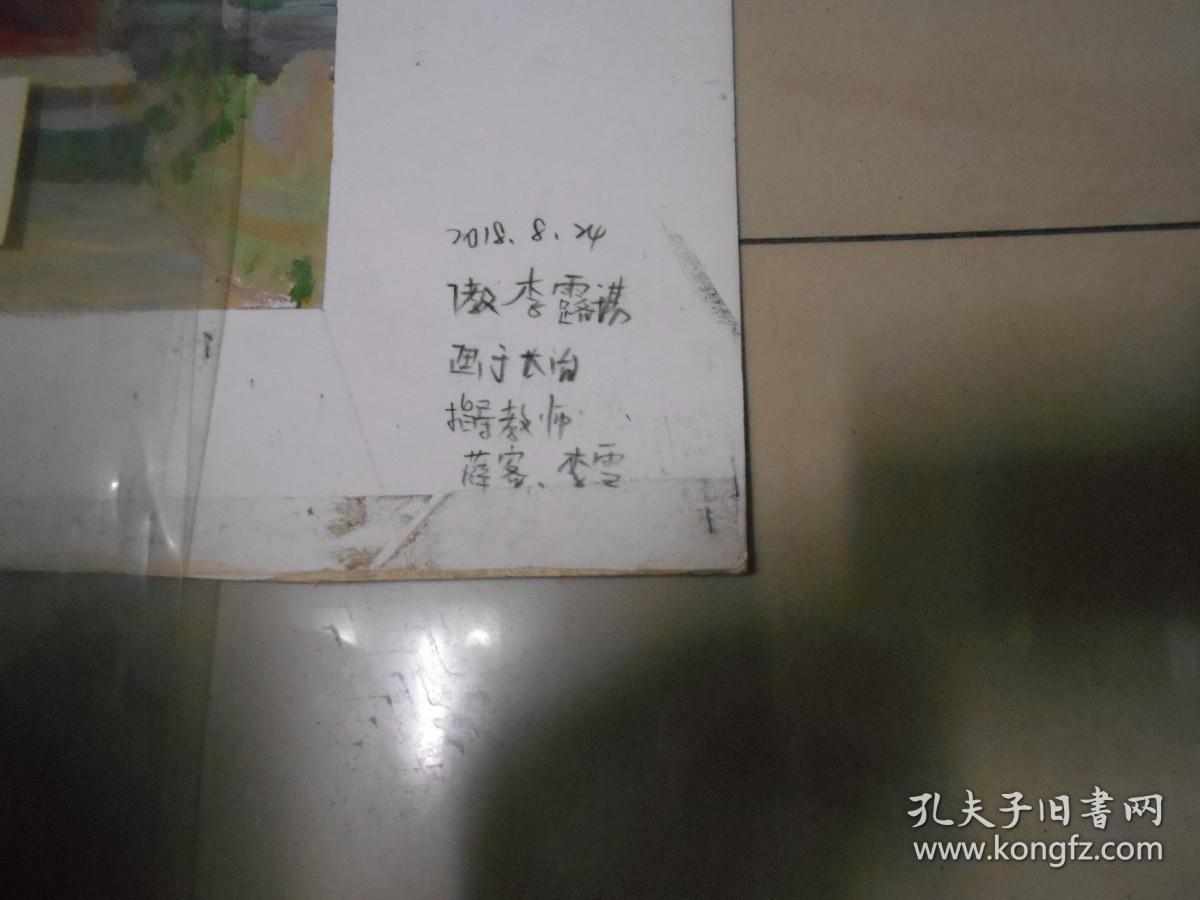 2018.8.24
李露
画于长治
指导教师
薛客、李雪
孔夫子旧書网
www.kongfz.com